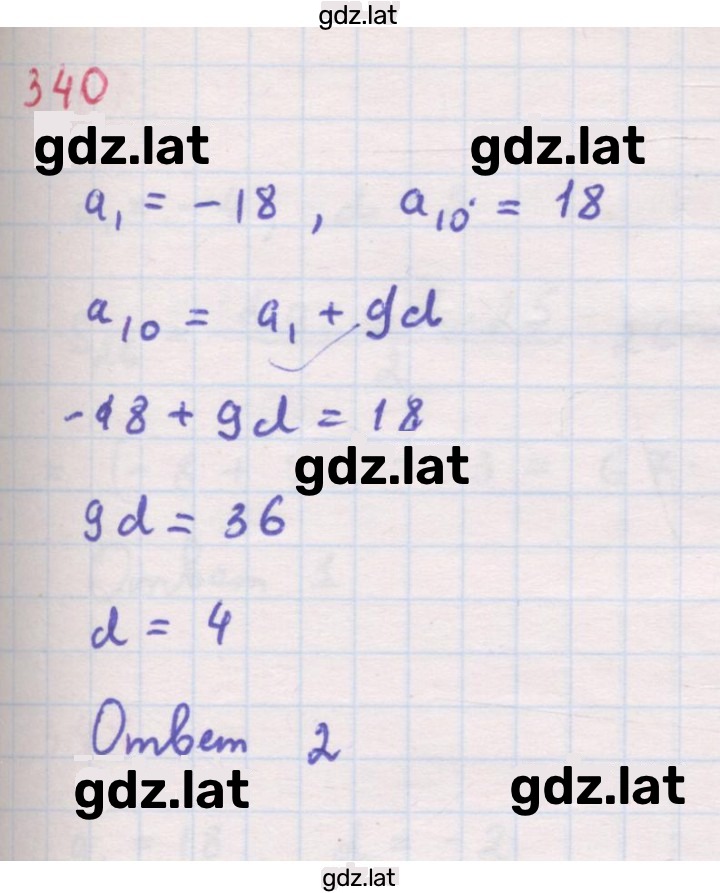 gdz.lat
340
gdz.lat gdz.lat
a₁ = -18, a₁₀ = 18
a₁₀ = a₁ + 9d
-18 + 9d = 18
gdz.lat
9d = 36
d = 4
Ответ 2
gdz.lat gdz.lat
gdz.lat